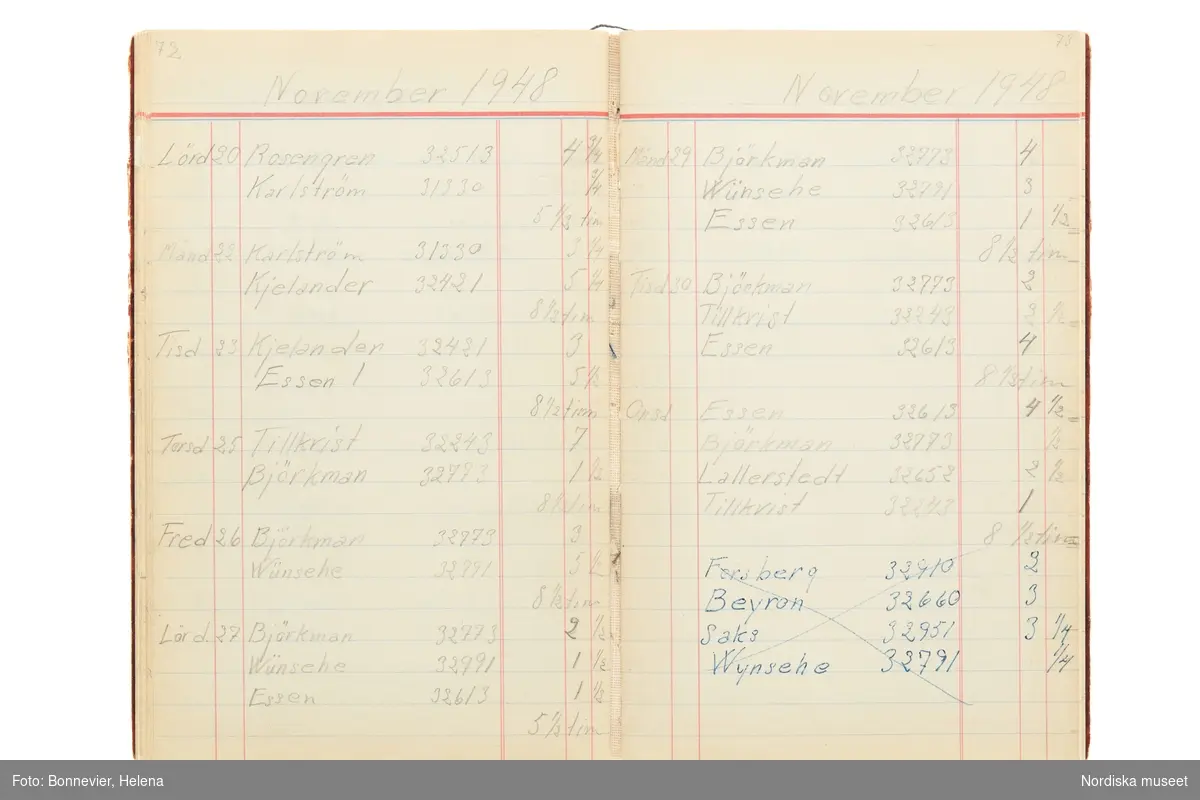 72
November 1948
Lörd 20 Rosengren 32513 4 3/4
Karlström 31330 3/4
5 1/2 tim
Månd 22 Karlström 31330 3 1/4
Kjelander 32421 5 1/4
8 1/2 tim
Tisd 23 Kjelander 32421 3
Essen 1 32613 5 1/2
8 1/2 tim
Torsd 25 Tillkvist 32243 7
Björkman 32773 1 1/2
8 1/2 tim
Fred 26 Björkman 32773 3
Wünsehe 32791 5 1/2
8 1/2 tim
Lörd. 27 Björkman 32773 2 1/2
Wünsehe 32991 1 1/2
Essen 32613 1 1/2
5 1/2 tim
73
November 1948
Månd 29 Björkman 32773 4
Wünsehe 32791 3
Essen 32613 1 1/2
8 1/2 tim
Tisd 30 Björkman 32773 2
Tillkvist 32243 2 1/2
Essen 32613 4
8 1/2 tim
Onsd Essen 32613 4 1/2
Björkman 32773 1/2
Lallerstedt 32652 2 1/2
Tillkvist 32243 1
8 1/2 tim
Forsberg 32910 2
Beyron 32660 3
Saks 32951 3 1/4
Wynsehe 32791 1/4
Foto: Bonnevier, Helena
Nordiska museet